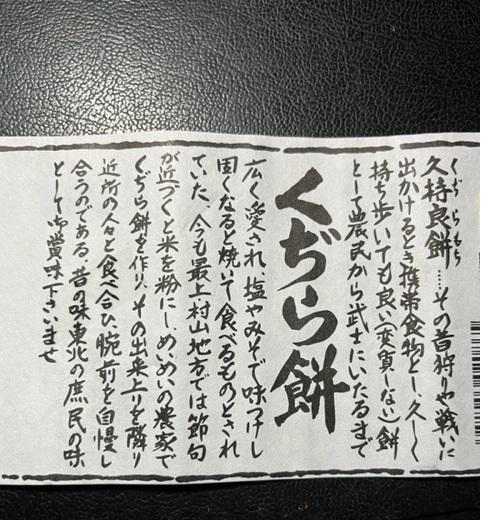 くぢらもち
久持良餅……その昔狩りや戦いに
出かけるとき携帯食物とし、久しく
持ち歩いても良い(変質しない)餅
として農民から武士にいたるまで
くぢら餅
広く愛され、塩やみそで味つけし
固くなると焼いて食べるものとされ
ていた。今も最上村山地方では節句
が近づくと米を粉にし、めいめいの農家で
くぢら餅を作り、その出来上りを隣り
近所の人々と食べ合ひ、腕前を自慢し
合うのである。昔の味東北の庶民の味
として御賞味下さいませ